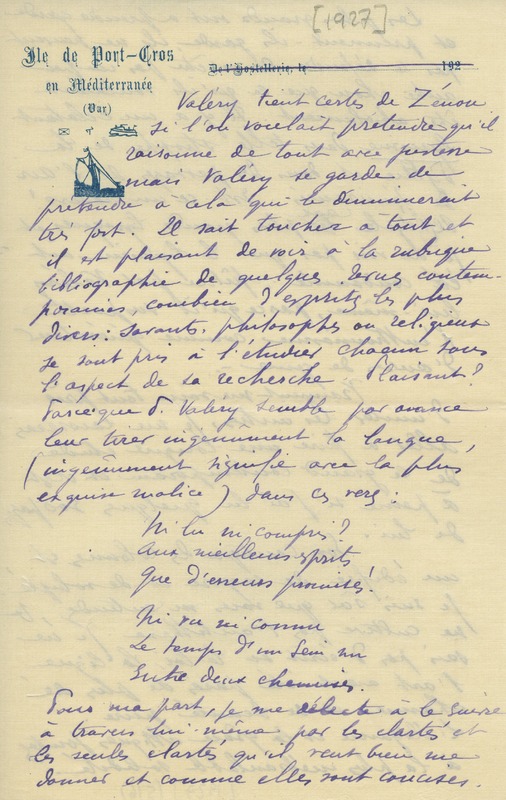 [1927]
Ile de Port-Cros
en Méditerranée
(Var)
De l'Hostellerie, le 192
Valéry tient certes de Zénon
si l'on voulait prétendre qu'il
raisonne de tout avec justesse
mais Valéry se garde de
prétendre à cela qui le diminuerait
très fort. Il sait toucher à tout et
il est plaisant de voir à la rubrique
bibliographie de quelques revues contem-
poraines, combien d'esprits les plus
divers : savants, philosophes ou religieux
se sont pris à l'étudier chacun sous
l'aspect de sa recherche. Plaisant ?
Parce que P. Valéry semble par avance
leur tirer ingénûment la langue,
(ingénûment signifie avec la plus
exquise malice) dans ces vers :
Ni lu ni compris ?
Aux meilleurs esprits
Que d'erreurs promises !
Ni vu ni connu
Le temps d'un sein nu
Entre deux chemises.
Pour ma part, je me délecte à le suivre
à travers lui-même par les clartés et
les seules clartés qu'il veut bien me
donner et comme elles sont concises.